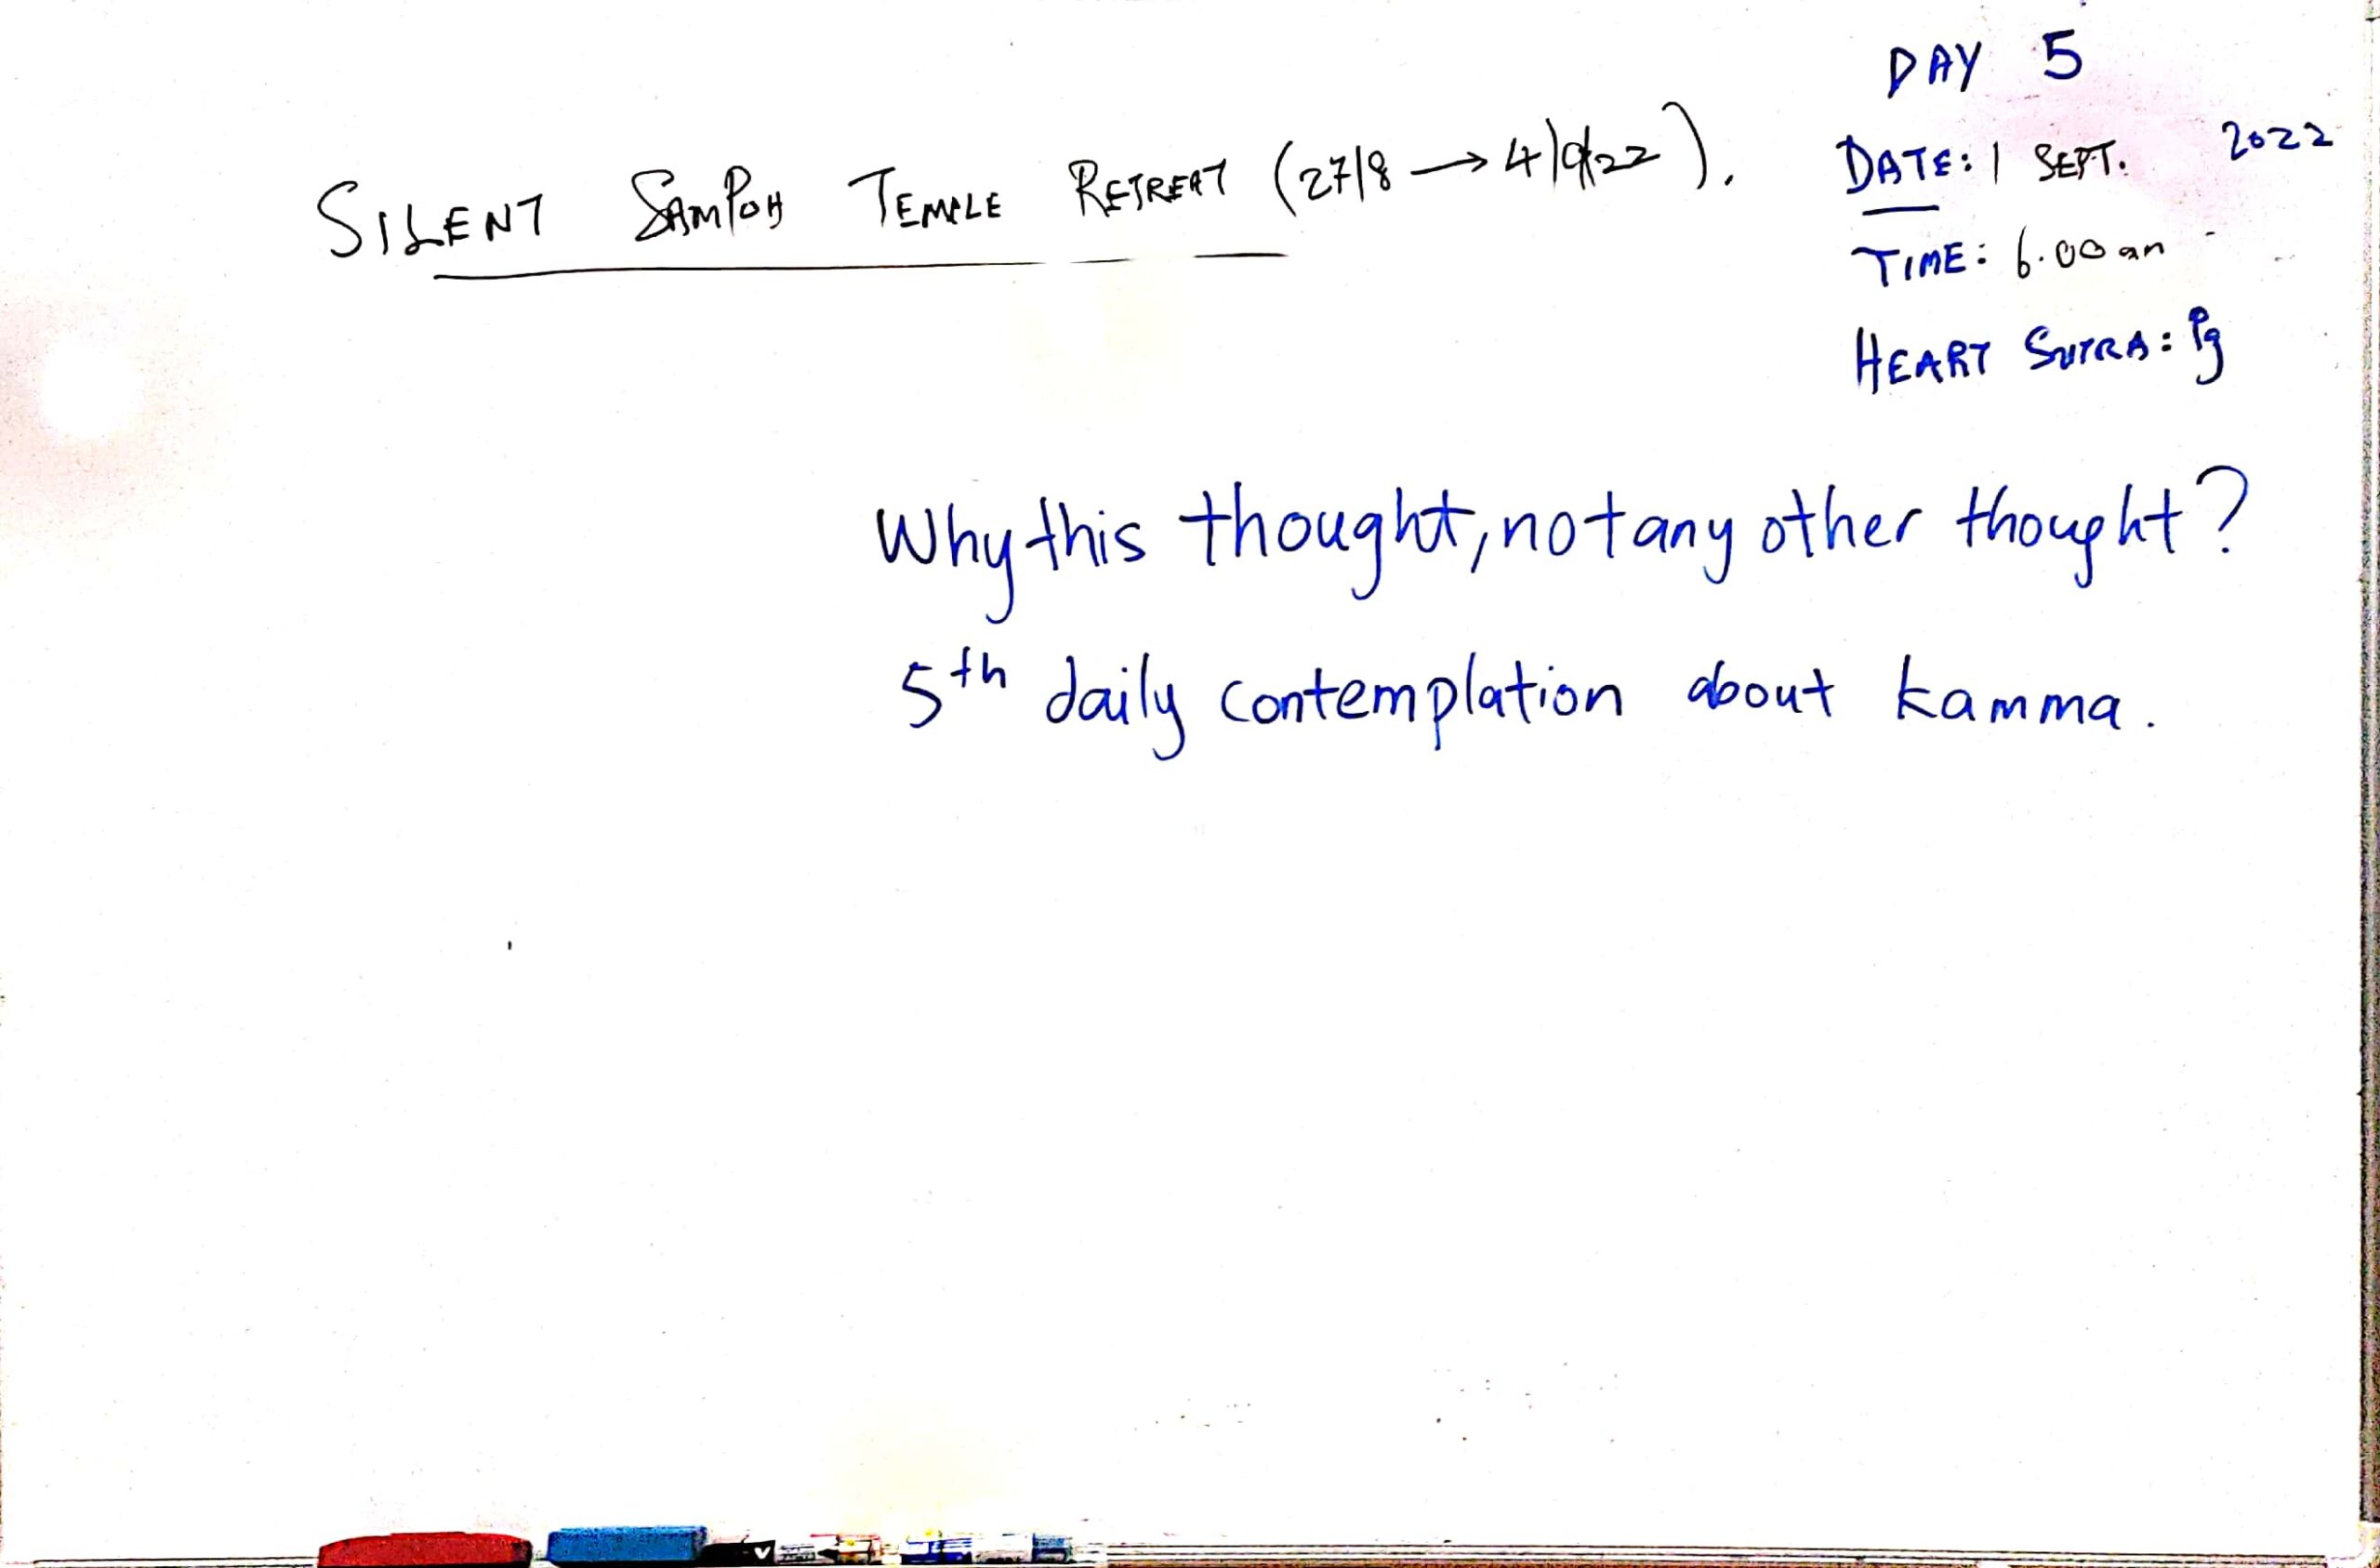 DAY 5
SILENT SAMPOH TEMPLE RETREAT (27/8 → 4/9/22).
DATE: 1 SEPT. 2022
TIME: 6.00 am
HEART SUTRA: Pg
Why this thought, not any other thought?
5th daily contemplation about kamma.